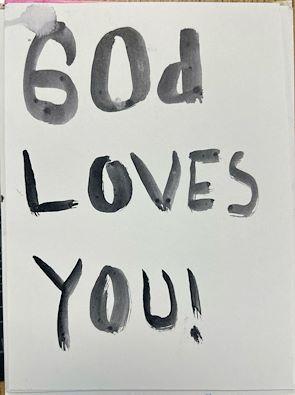 GOd
LOVES
YOU!